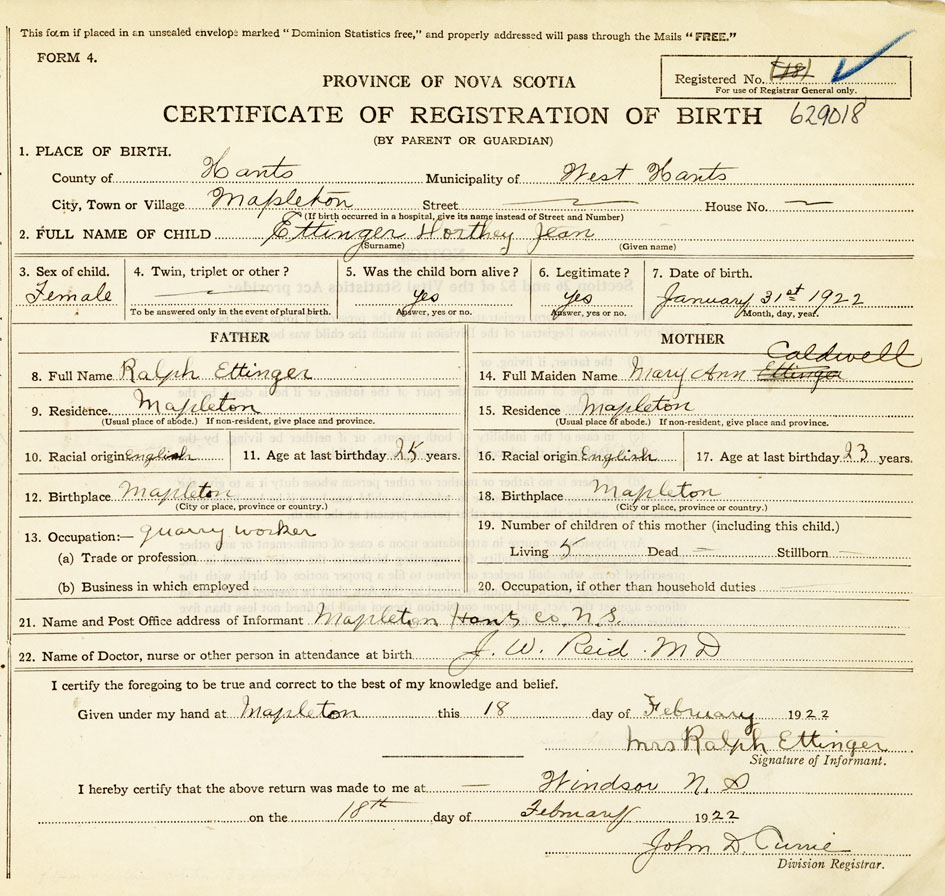 This form if placed in an unsealed envelope marked "Dominion Statistics free," and properly addressed will pass through the Mails "FREE."
FORM 4.
Registered No. (18)
For use of Registrar General only.
PROVINCE OF NOVA SCOTIA
CERTIFICATE OF REGISTRATION OF BIRTH 629018
(BY PARENT OR GUARDIAN)
1. PLACE OF BIRTH.
County of Hants Municipality of West Hants
City, Town or Village Mapleton Street — House No. —
(If birth occurred in a hospital, give its name instead of Street and Number)
2. FULL NAME OF CHILD Ettinger Horthey Jean
(Surname) (Given name)
3. Sex of child. 4. Twin, triplet or other? 5. Was the child born alive? 6. Legitimate? 7. Date of birth.
Female — yes yes January 31st 1922
To be answered only in the event of plural birth. Answer, yes or no. Answer, yes or no. Month, day, year.
FATHER
8. Full Name Ralph Ettinger
9. Residence. Mapleton
(Usual place of abode.) If non-resident, give place and province.
10. Racial origin English 11. Age at last birthday 25 years.
12. Birthplace Mapleton
(City or place, province or country.)
13. Occupation:— quarry worker
(a) Trade or profession
(b) Business in which employed
MOTHER
Caldwell
14. Full Maiden Name Mary Ann Ettinger
15. Residence Mapleton
(Usual place of abode.) If non-resident, give place and province.
16. Racial origin English 17. Age at last birthday 23 years.
18. Birthplace Mapleton
(City or place, province or country.)
19. Number of children of this mother (including this child.)
Living 5 Dead — Stillborn —
20. Occupation, if other than household duties
21. Name and Post Office address of Informant Mapleton Hants Co. N.S.
22. Name of Doctor, nurse or other person in attendance at birth J. W. Reid MD
I certify the foregoing to be true and correct to the best of my knowledge and belief.
Given under my hand at Mapleton this 18 day of February 1922
Mrs Ralph Ettinger
Signature of Informant.
I hereby certify that the above return was made to me at — Windsor N. S
on the 18th day of February 1922
John D. Currie
Division Registrar.